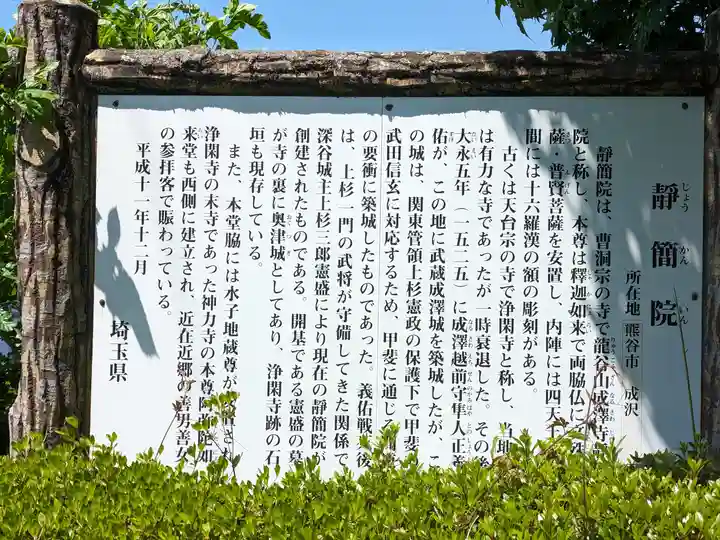 靜簡院
じょうかんいん
所在地 熊谷市 成沢
靜簡院は、曹洞宗の寺で龍谷山成澤寺靜
院と称し、本尊は釋迦如来で両脇仏に
薩・普賢菩薩を安置し、内陣には四天
間には十六羅漢の額の彫刻がある。
古くは天台宗の寺で浄閑寺と称し、当地
は有力な寺であったが一時衰退した。その後
大永五年(一五二五)に成澤越前守隼人正義
佑が、この地に武蔵成澤城を築城したが、こ
の城は、関東管領上杉憲政の保護下で甲斐
武田信玄に対応するため、甲斐に通じる
の要衝に築城したものであった。義佑戦
は、上杉一門の武将が守備してきた関係で
深谷城主上杉三郎憲盛により現在の靜簡院が
創建されたものである。開基である憲盛の墓
が寺の裏に奥津城としてあり、浄閑寺跡の石
垣も現存している。
また、本堂脇には水子地蔵尊が
浄閑寺の末寺であった神力寺の本尊阿
来堂も西側に建立され、近在近郷の善男善女
の参拝客で賑わっている。
平成十一年十二月
埼玉県